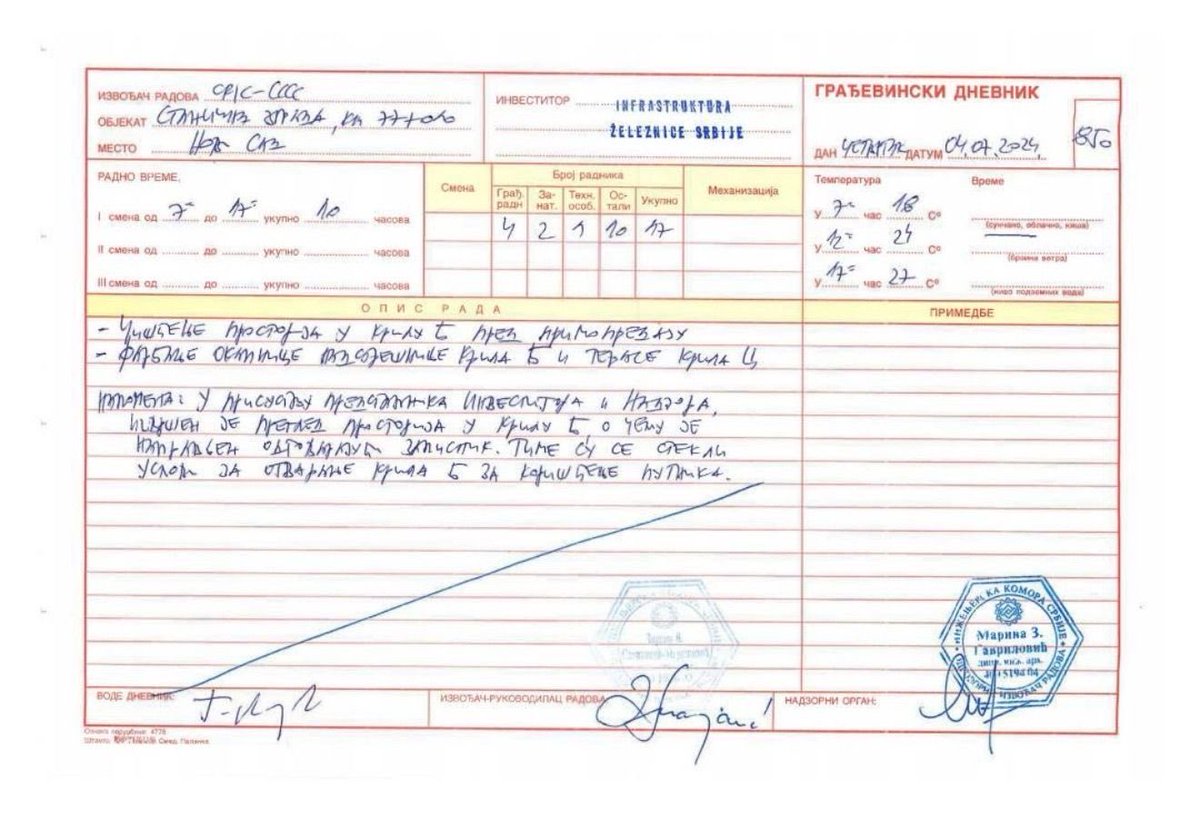 ГРАЂЕВИНСКИ ДНЕВНИК
ИЗВОЂАЧ РАДОВА CRIC-CCCC
ОБЈЕКАТ СТАНИЧНА ЗГРАДА, КМ 77+0
МЕСТО НОВИ САД
ИНВЕСТИТОР INFRASTRUKTURA
ŽELEZNICE SRBIJE
ДАН ЧЕТВРТАК ДАТУМ 04.07.2024.
РАДНО ВРЕМЕ.
I смена од 7= до 17= укупно 10 часова
II смена од до укупно часова
III смена од до укупно часова
Смена
Број радника
Механизација
Грађ. радн
За- нат.
Техн. особ.
Ос- тали
Укупно
4 2 1 10 17
Температура
Време
У 7= час 18 C°
(сунчано, облачно, киша)
У 12= час 24 C°
(брзина ветра)
У 17= час 27 C°
(ниво подземних вода)
ОПИС РАДА
ПРИМЕДБЕ
- ЧИШЋЕЊЕ ПРОСТОРИЈА У КРИЛУ Б ПРЕД ПРИМОПРЕДАЈУ
- ФАРБАЊЕ ОКАПНИЦЕ НАДСТРЕШНИЦЕ КРИЛА Б И ТЕРАСЕ КРИЛА Ц
НАПОМЕНА: У ПРИСУСТВУ ПРЕДСТАВНИКА ИНВЕСТИТОРА И НАДЗОРА,
ИЗВРШЕН ЈЕ ПРЕГЛЕД ПРОСТОРИЈА У КРИЛУ Б О ЧЕМУ ЈЕ
НАПРАВЉЕН ОДГОВАРАЈУЋИ ЗАПИСНИК. ТИМЕ СУ СЕ СТЕКЛИ
УСЛОВИ ЗА ОТВАРАЊЕ КРИЛА Б ЗА КОРИШЋЕЊЕ ПУТНИКА.
ИНЖЕЊЕРСКА КОМОРА СРБИЈЕ
Марина З.
Гавриловић
дипл. инж. арх.
ОДГОВОРНИ ИЗВОЂАЧ РАДОВА
ВОДЕ ДНЕВНИК:
ИЗВОЂАЧ-РУКОВОДИЛАЦ РАДОВА
НАДЗОРНИ ОРГАН:
Ознака поруџбине: 4778